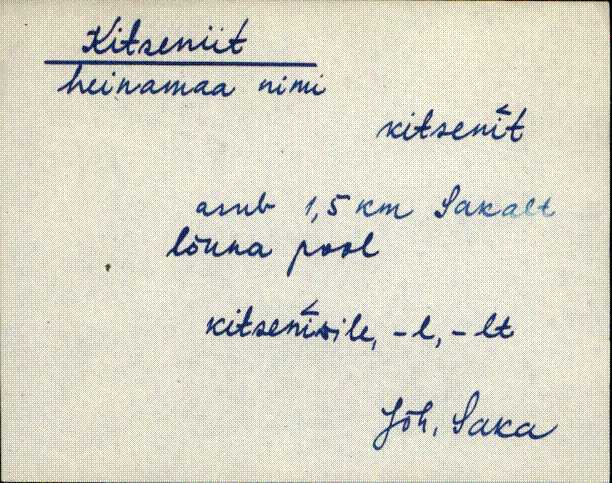 Kitseniit
heinamaa nimi
kitsenì̆t
asub 1,5 km Sakalt
lõuna pool
kitsenì̆sile, -l, -lt
Jõh, Saka